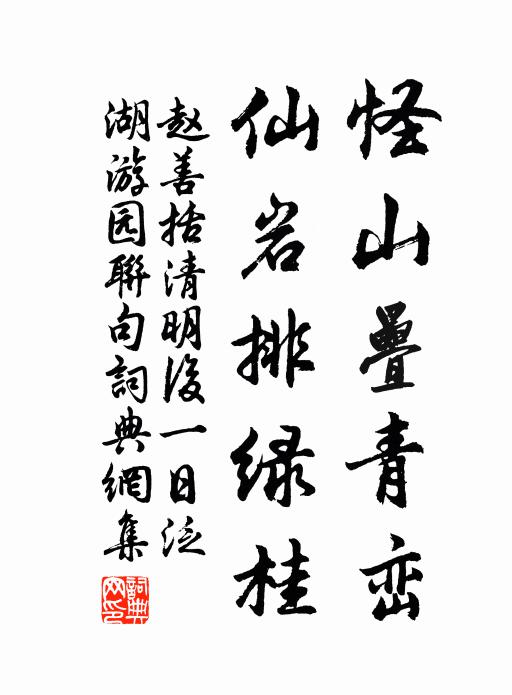 怪山疊青峦
仙岩排绿桂
赵善括清明後一日泛
湖游园聯句詞典網集
詞典網印